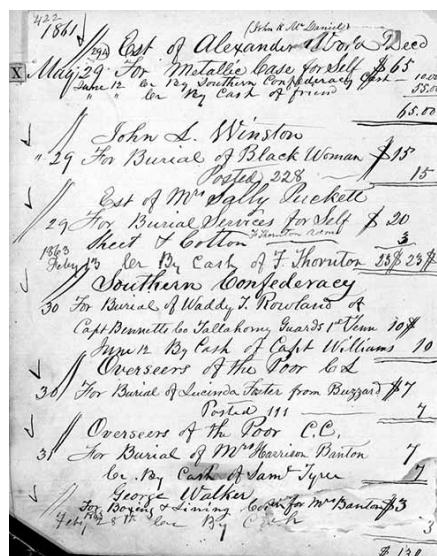 422
1861 (John R McDaniel)
29th Est of Alexander World Deed
X May 29 For Metallic Case for Self $65
June 12 Cr By Southern Confederacy 10.00
" " Cr By Cash of friend 55.00
65.00
John S. Winston
" 29 For Burial of Black Woman $15
Posted 228 15
Est of Mrs Sally Puckett
29 For Burial Services for Self $20
Sheet & Cotton F Thornton 3
1863
Feby 13 Cr By Cash of F. Thornton 23$ 23$
Southern Confederacy
30 For Burial of Waddy T. Rowland of
Capt Bennetts Co Tallahomy Guards 1st Tenn 10$
June 12 By Cash of Capt Williams 10
Overseers of the Poor CC
30 For Burial of Lucinda Foster from Buzzard $7
Posted 111 7
Overseers of the Poor C.C.
31 For Burial of Mrs Harrison Banton 7
Cr. By Cash of Saml Tyree 7
George Walker
For Boxing & Lining Coffin for Mrs Banton $3
Feby 28th Cr By Cash 3